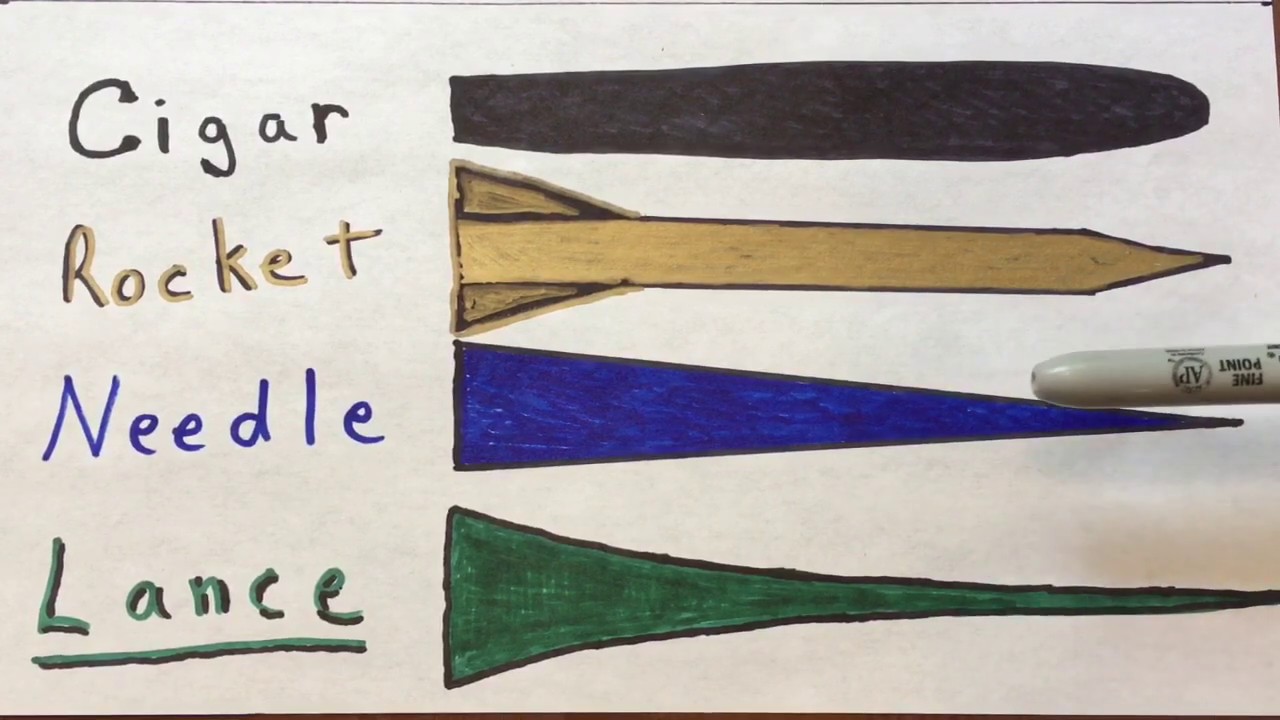 Cigar
Rocket
Needle
FINE
POINT
AP
Lance